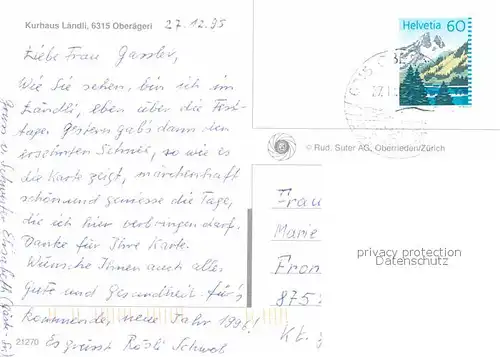 Kurhaus Ländli, 6315 Oberägeri 27.12.95
Liebe Frau Gassler,
Wie Sie sehen, bin ich im
Ländli, eben über die Fest-
tage. Gestern gab's dann den
ersehnten Schnee, so wie es
die Karte zeigt, märchenhaft
schön und geniesse die Tage,
die ich hier verbringen darf.
Danke für Ihre Karte.
Wünsche Ihnen auch alles
Gute und Gesundheit für's
kommende, neue Jahr 1996!
Es grüsst Rösli Schwab
21270
Helvetia 60
© Rud. Suter AG, Oberrieden/Zürich
Frau
Marie
Fron
875
Kt. g
privacy protection
Datenschutz